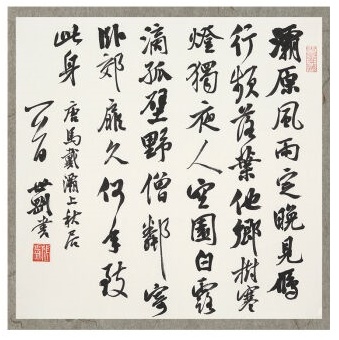 灞原風雨定晚見鴈
行頻落葉他鄉樹寒
燈獨夜人空園白露
滴孤壁野僧鄰寄
卧郊扉久何年致
此身
唐馬戴灞上秋居